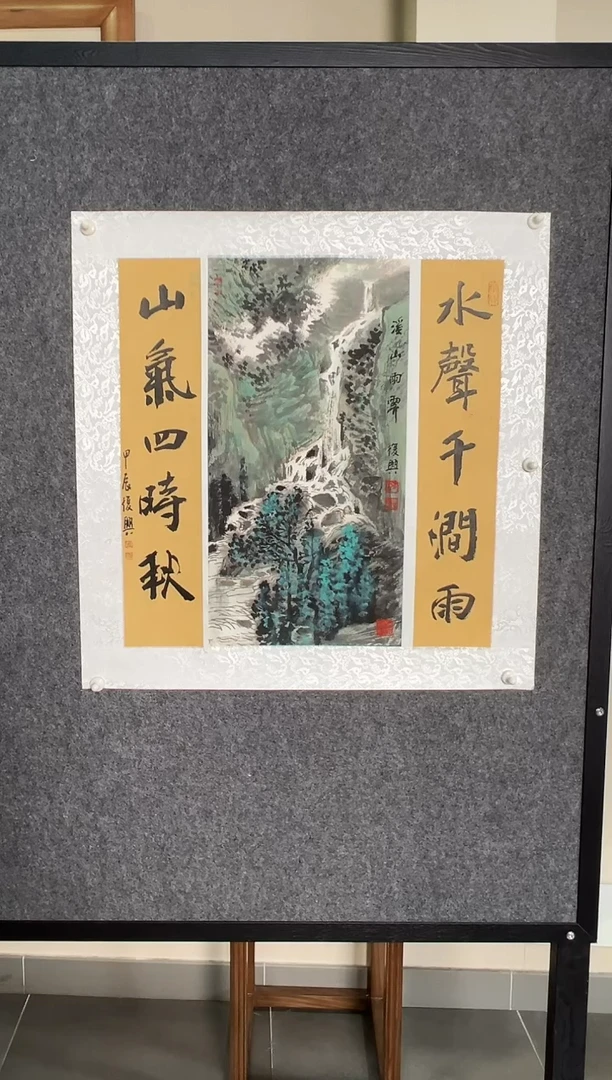 水聲千澗雨
溪山雨霽
復興
山氣四時秋
甲辰復興